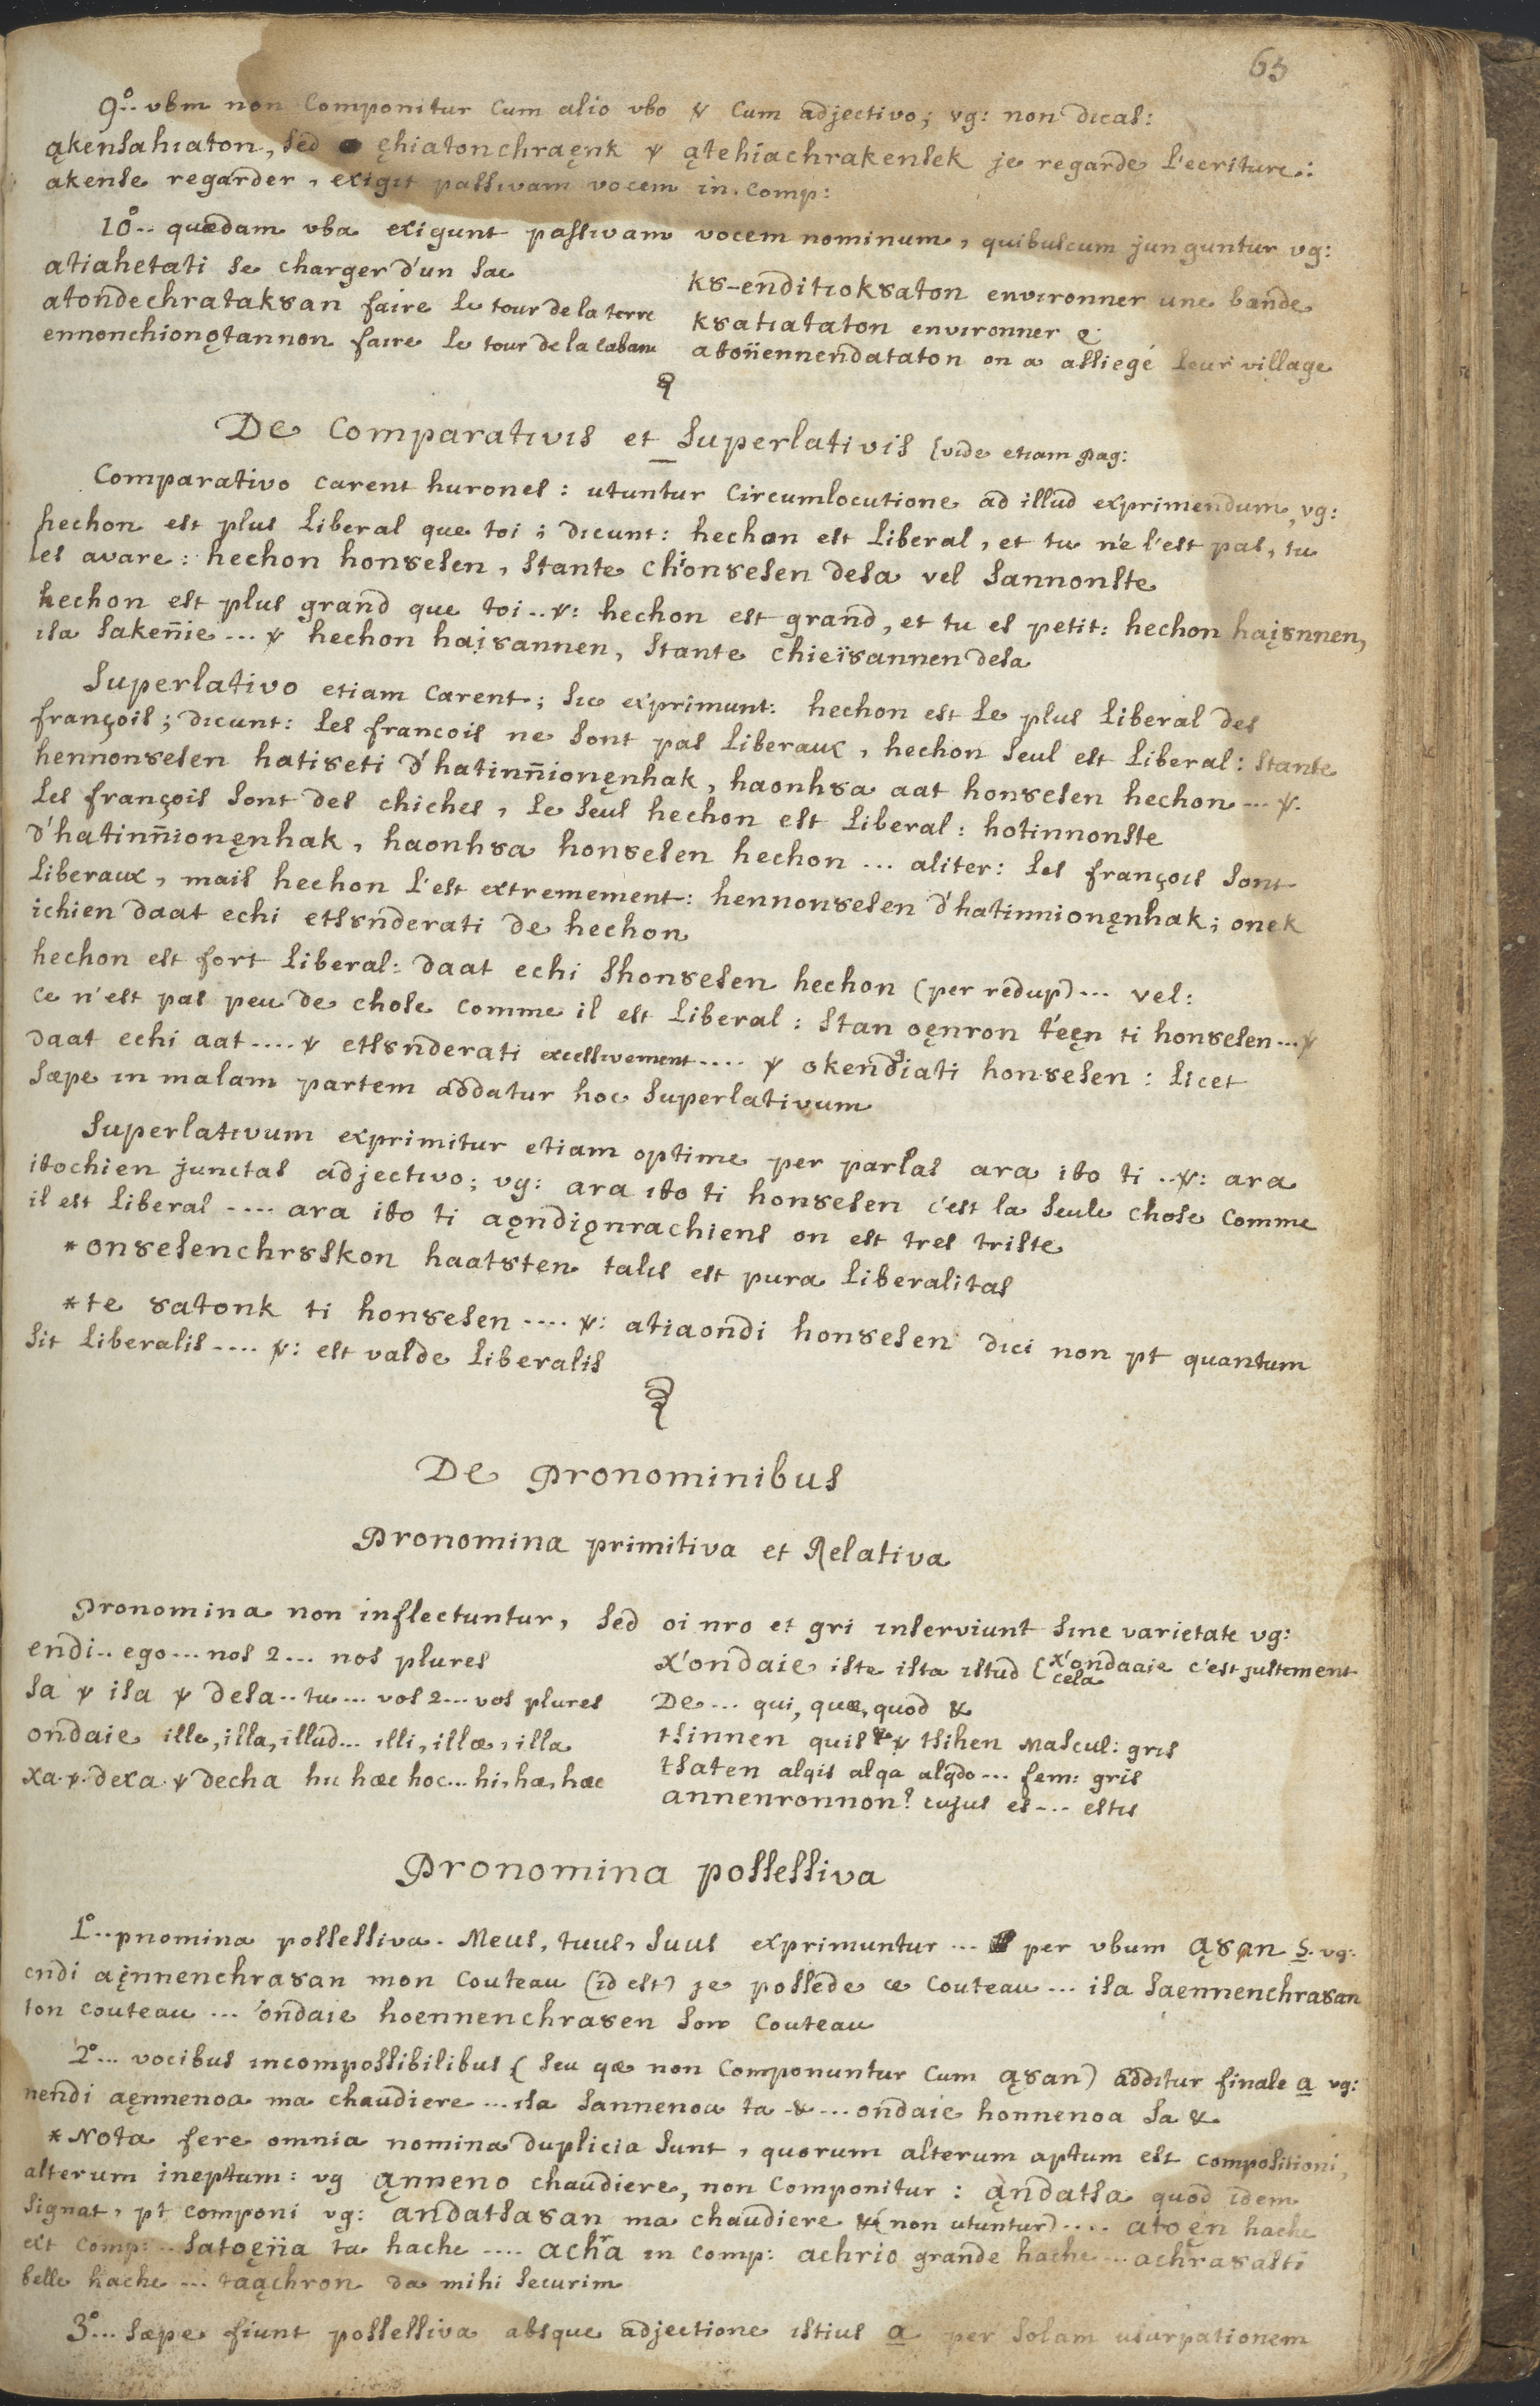 65
9º.. vbm non Componitur Cum alio vbo & Cum adjectivo; vg: non dicas:
ąkensahiaton, sed ęhiatonchraęnk & ątehiachrakensek je regarde l'ecriture.:
akense regarder, exigit passivam vocem in. Comp:
10º.. quædam vba exigunt passivam vocem nominum, quibuscum junguntur vg:
atiahetati se charger d'un sac
atondechratak8an faire le tour de la terre
ennonchionǫtannon faire le tour de la caban
k8-enditiok8aton environner une bande
k8atiataton environner
atoñennendataton on a assiegé leur village
De Comparativis et Superlativis (vide etiam pag:
Comparativo carent hurones: utuntur Circumlocutione ad illud exprimendum, vg:
hechon est plus liberal que toi; dicunt: hechon est liberal, et tu ne l'est pas, tu
es avare: hechon hon8esen, stante chion8esen desa vel sannonste
hechon est plus grand que toi..&: hechon est grand, et tu es petit: hechon hai̧8nnen,
isa sakeñie... & hechon hai̧8annen, stante chieï8annen desa
Superlativo etiam Carent; sic exprimunt: hechon est le plus liberal des
françois; dicunt: les francois ne sont pas liberaux, hechon seul est liberal: stante
hennon8esen hati8eti d'hatinñionęnhak, haonh8a aat hon8esen hechon... &.
les françois sont des chiches, le seul hechon est liberal: hotinnonste
d'hatinñionęnhak, haonh8a hon8esen hechon ... aliter: les françois sont
liberaux, mais hechon l'est extremement: hennon8esen d'hatinnionęnhak; onek
ichien daat echi ets8nderati de hechon
hechon est fort liberal: daat echi shon8esen hechon (per redup)... vel:
ce n'est pas peu de chose comme il est liberal: stan oęnron t'eęn ti hon8esen...&
daat echi aat....& ets8nderati excessivement.... & okendiati hon8esen: licet
sæpe in malam partem addatur hoc superlativum
Superlativum exprimitur etiam optime per parlas ara ito ti ..&: ara
itochien junctas adjectivo; vg: ara ito ti hon8esen c'est la seule chose comme
il est liberal .... ara ito ti aǫndiǫnrachiens on est tres triste
*on8esenchr8skon haat8ten talis est pura liberalitas
*te 8atonk ti hon8esen .... &: atiaondi hon8esen dici non pt quantum
sit liberalis.... &: est valde liberalis
De Pronominibus
Pronomina primitiva et Relativa
Pronomina non inflectuntur, sed oi nro et gri inserviunt sine varietate vg:
endi.. ego... nos 2... nos plures
sa & isa & desa.. tu... vos 2... vos plures
ondaie ille, illa, illud... illi, illæ, illa
xa.&.dexa.& decha hic hæc hoc... hi, hæ, hæc
x'ondaie iste ista istud (x'ondaaie c'est justement
cela
De... qui, quæ, quod &
tsinnen quis & tsihen Mascul: gris
tsaten alqis alqa alqdo... fem: gris
annenronnon? cujus es... estis
Pronomina possessiva
1º..pnomina possessiva. Meus, tuus, suus exprimuntur ... per vbum ą8an S. vg:
endi ai̧nnenchra8an mon Couteau (id est) je possede ce Couteau ... isa saennenchra8an
ton couteau ... 'ondaie hoennenchra8en son Couteau
2º... vocibus incompossibilibus (seu qæ non Componuntur Cum ą8an) additur finale a vg:
nendi aęnnenoa ma chaudiere ... isa sannenoa ta &... ondaie honnenoa sa &
*Nota fere omnia nomina duplicia sunt, quorum alterum aptum est compositioni,
alterum ineptum: vg ąnneno chaudiere, non Componitur: ąndatsa quod idem
signat, pt componi vg: andatsa8an ma chaudiere &(non utuntur).... atoęn hache
ext comp: ..satoęiia ta hache .... achra in comp: achrio grande hache ... achra8asti
belle hache ... taąchron da mihi securim
3º... sæpe fiunt possessiva absque adjectione istius a per solam usurpationem